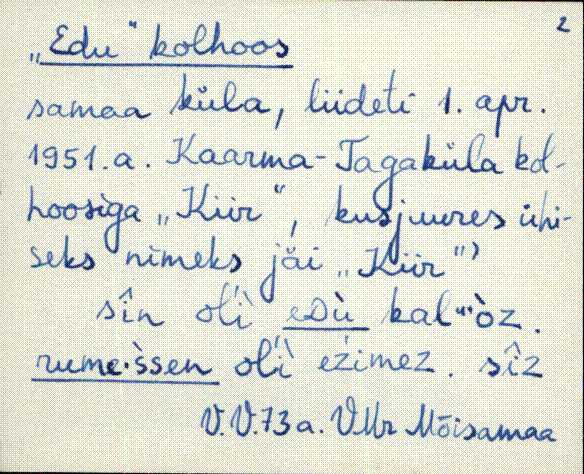 2
„Edu“ kolhoos
samaa küla, liideti 1. apr.
1951.a. Kaarma-Tagaküla kol-
hoosiga „Kiir“, kusjuures ühi-
seks nimeks jäi „Kiir“)
sîn oĺì eDù kal"òz.
rume·ìssen oĺì ežimez. sîz
V.V.73 a. VMr Mõisamaa